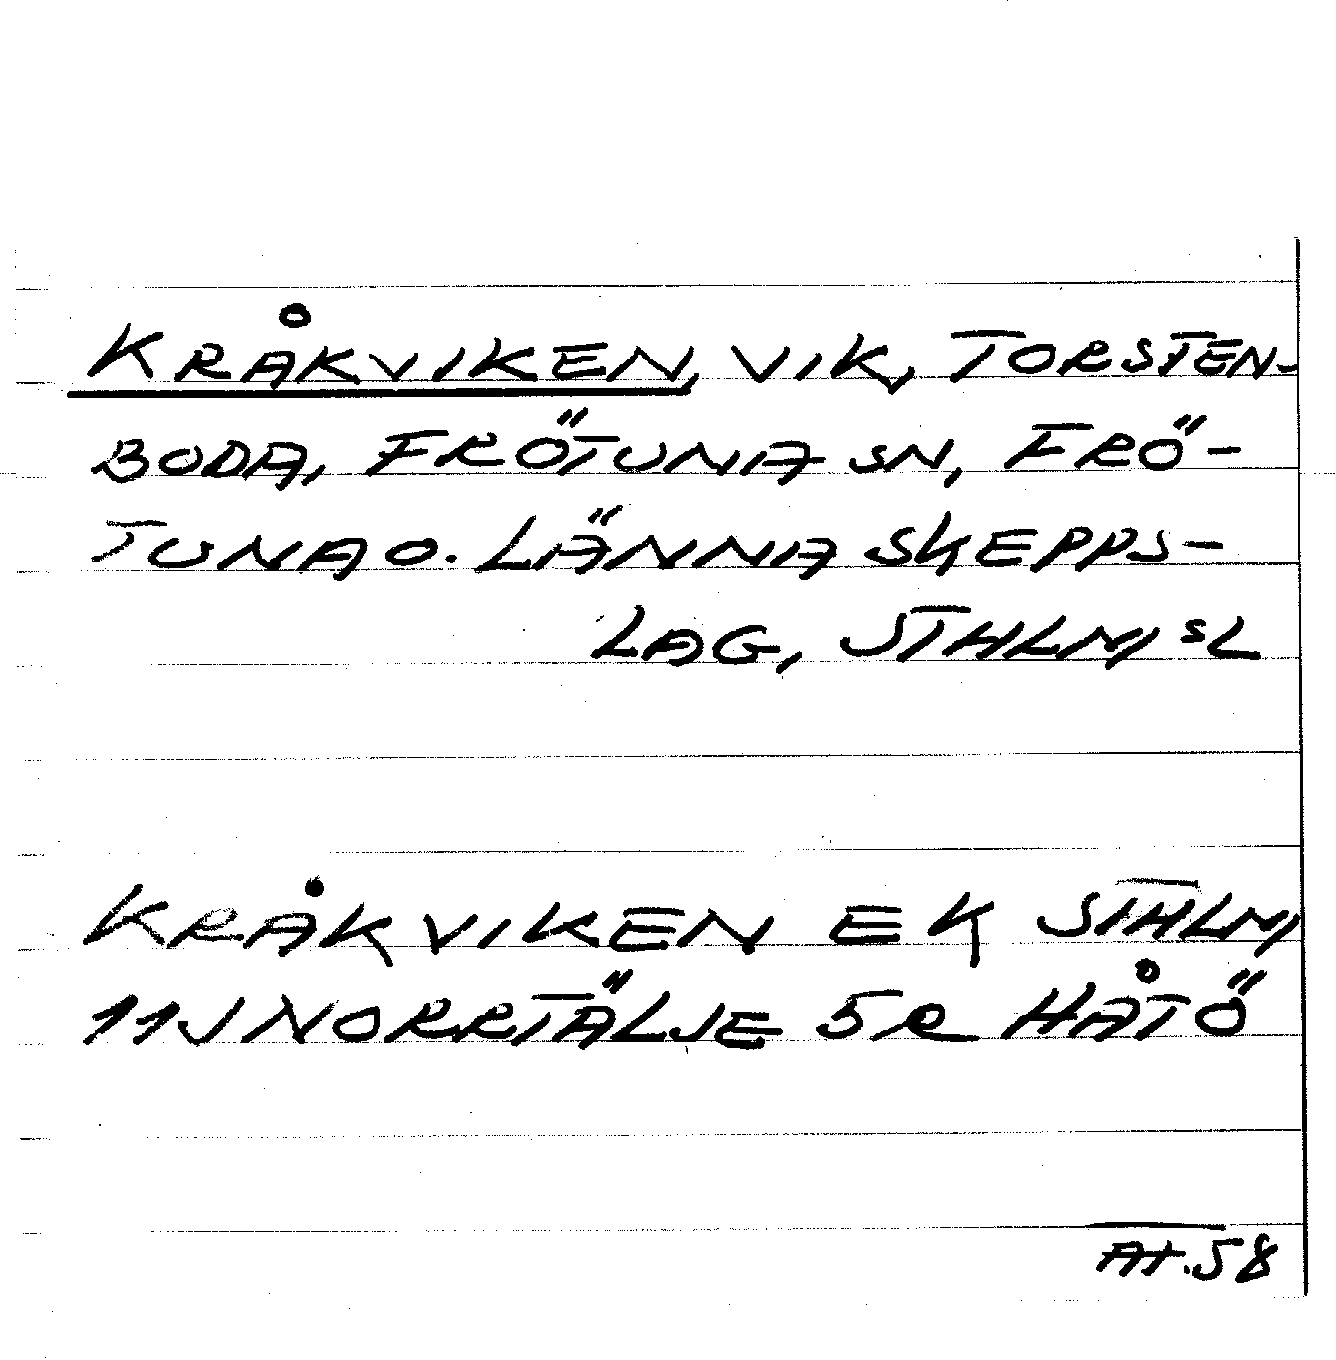 KRÅKVIKEN, VIK, TORSTEN-
BODA, FRÖTUNA SN, FRÖ-
TUNA O. LÄNNA SKEPPS-
LAG, STHLM SL
KRÅKVIKEN EK STHLM
11J NORRTÄLJE 5R HÅTÖ
AT.58